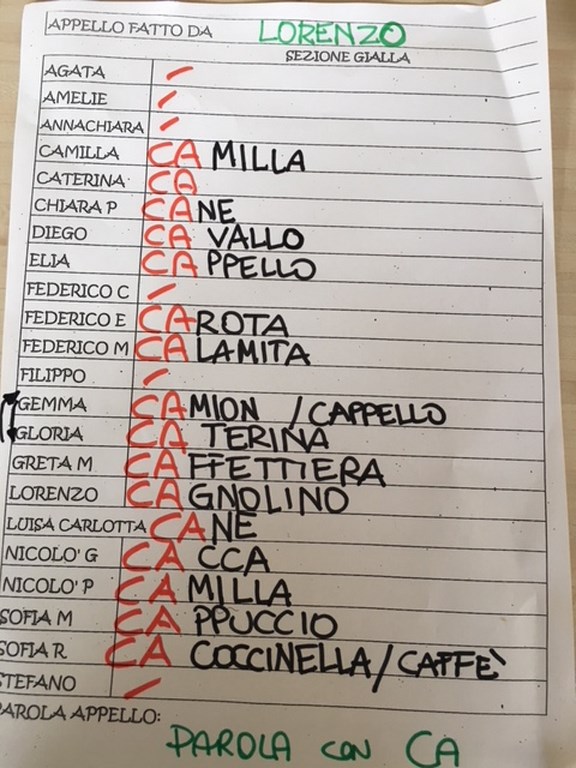 APPELLO FATTO DA LORENZO
SEZIONE GIALLA
AGATA /
AMELIE /
ANNACHIARA /
CAMILLA CAMILLA
CATERINA CA
CHIARA P CANE
DIEGO CAVALLO
ELIA CAPPELLO
FEDERICO C /
FEDERICO E CAROTA
FEDERICO M CALAMITA
FILIPPO /
GEMMA CAMION / CAPPELLO
GLORIA CATERINA
GRETA M CAFFETTIERA
LORENZO CAGNOLINO
LUISA CARLOTTA CANE
NICOLO' G CACCA
NICOLO' P CAMILLA
SOFIA M CAPPUCCIO
SOFIA R CA COCCINELLA / CAFFÈ
STEFANO /
PAROLA APPELLO:
PAROLA CON CA